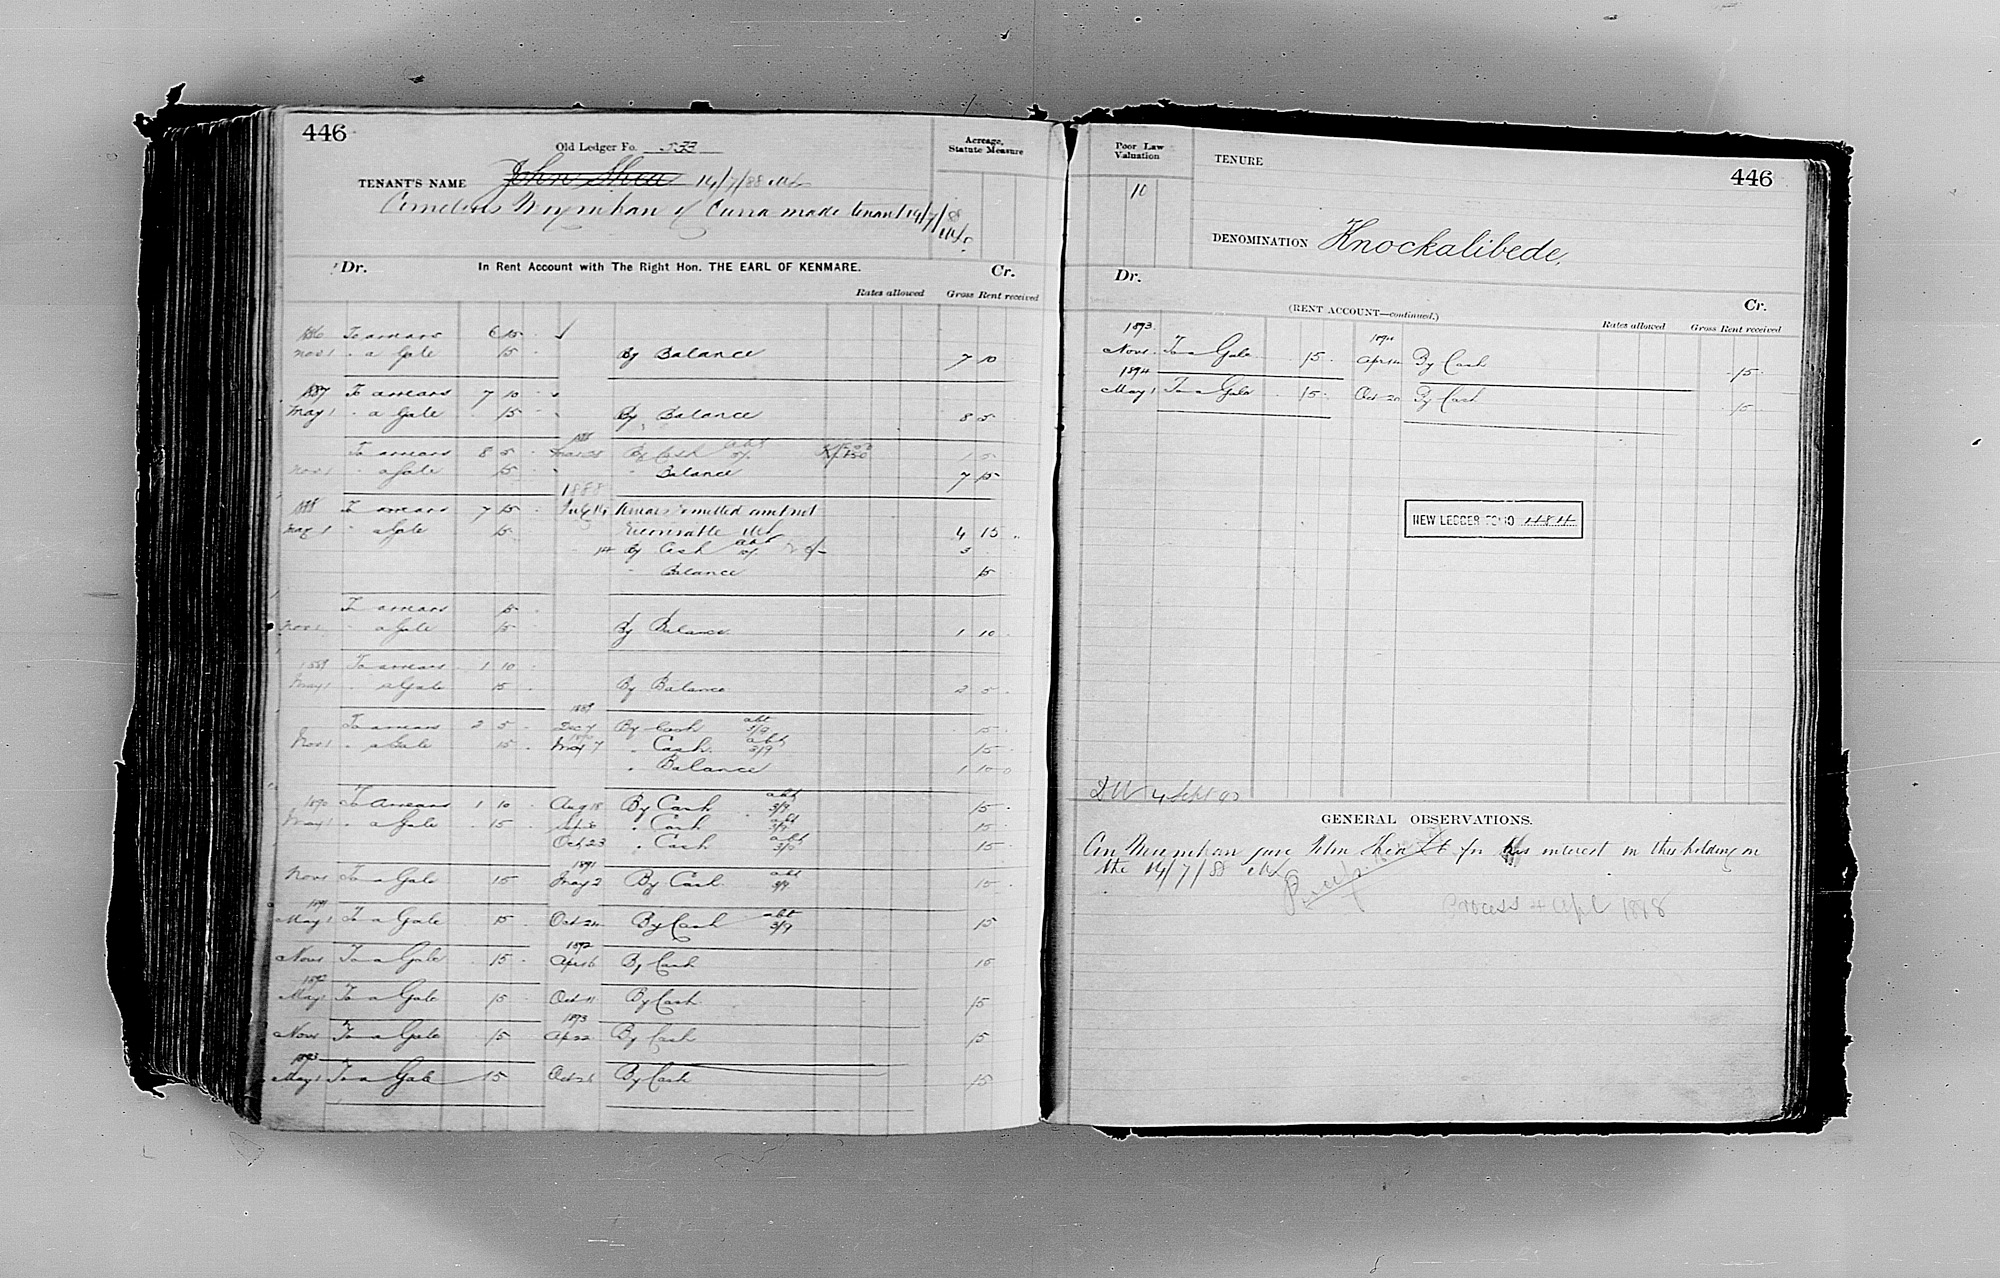 446
Old Ledger Fo. 533
Acreage,
Statute Measure
TENANT'S NAME John Shea 14/7/88
Cornelius Moynihan of Curra made tenant 14/7/88
Dr. In Rent Account with The Right Hon. THE EARL OF KENMARE. Cr.
Rates allowed Gross Rent received
1886 To arrears 6 15
Nov 1 " a Gale 15 By Balance 7 10
1887 To arrears 7 10
May 1 " a Gale 15 By Balance 8 5
1888
To arrears 8 5 By Cash abt 1 5
Nov 1 " a Gale 15 " Balance 7 15
1888
1888 To arrears 7 15 July 14 Arrears remitted
May 1 " a Gale 15 4 15
14 By Cash abt 3
" Balance 15
To arrears 15
Nov 1 " a Gale 15 By Balance 1 10
1889 To arrears 1 10
May 1 " a Gale 15 By Balance 2 5
1889
To arrears 2 5 Dec 7 By Cash abt 3/9 15
1890
Nov 1 " a Gale 15 May 7 " Cash abt 3/9 15
" Balance 1 10 0
1890 To Arrears 1 10 Aug 18 By Cash abt 3/9 15
May 1 " a Gale 15 Sep 8 " Cash abt 3/9 15
Oct 23 " Cash abt 3/9 15
1891
Nov 1 To a Gale 15 May 2 By Cash abt 3/9 15
1891
May 1 To a Gale 15 Oct 24 By Cash abt 3/9 15
1892
Nov 1 To a Gale 15 Apr 16 By Cash 15
1892
May 1 To a Gale 15 Oct 11 By Cash 15
1893
Nov 1 To a Gale 15 Ap 22 By Cash 15
1893
May 1 To a Gale 15 Oct 28 By Cash 15
Poor Law
Valuation
TENURE
446
10
DENOMINATION Knockalibede.
Dr. Cr.
(RENT ACCOUNT—continued.)
Rates allowed Gross Rent received
1893 1894
Nov 1 To a Gale 15 Apr 14 By Cash 15
1894
May 1 To a Gale 15 Oct 20 By Cash 15
NEW LEDGER FOLIO 1184
4 Sept 90
GENERAL OBSERVATIONS.
Con Moynihan gave John Shea for his interest in this holding on
the 14/7/88
Process 1898